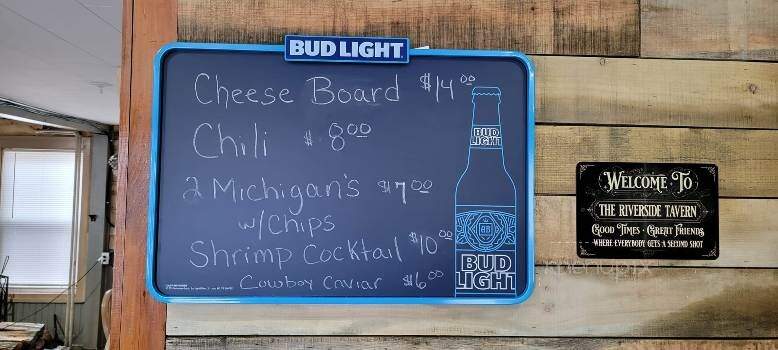 BUD LIGHT
Cheese Board $14 00
Chili $ 8 00
2 Michigan's $7 00
w/Chips
Shrimp Cocktail $10 00
Cowboy Caviar $6 00
BUD
LIGHT
BUD
LIGHT
WELCOME TO
THE RIVERSIDE TAVERN
GOOD TIMES - GREAT FRIENDS
WHERE EVERYBODY GETS A SECOND SHOT